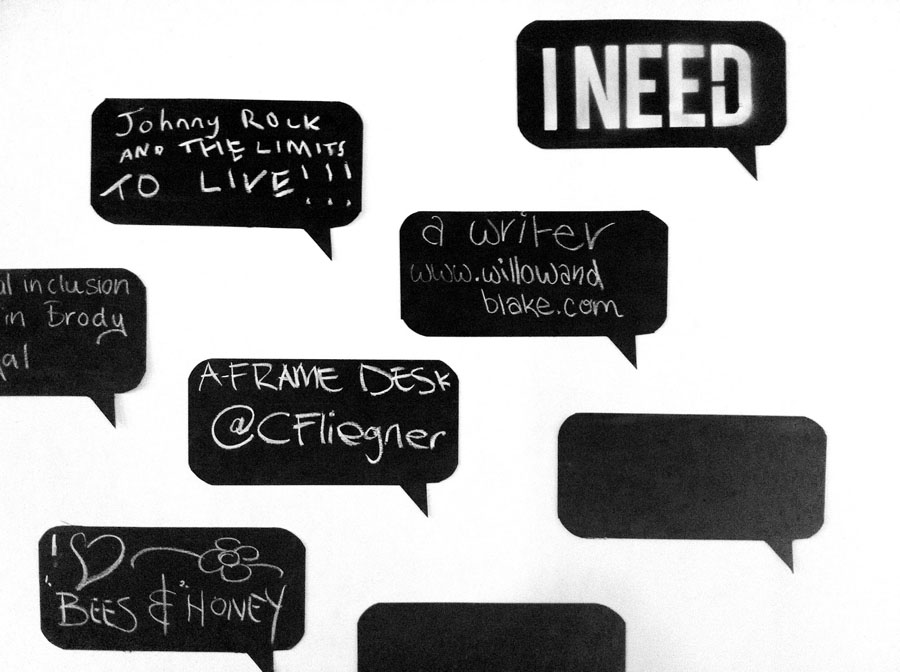 I NEED
Johnny ROCK
AND THE LIMITS
TO LIVE!!!
a writer
www.willowand
blake.com
inclusion
in Brody
A-FRAME DESK
@CFliegner
BEES & HONEY